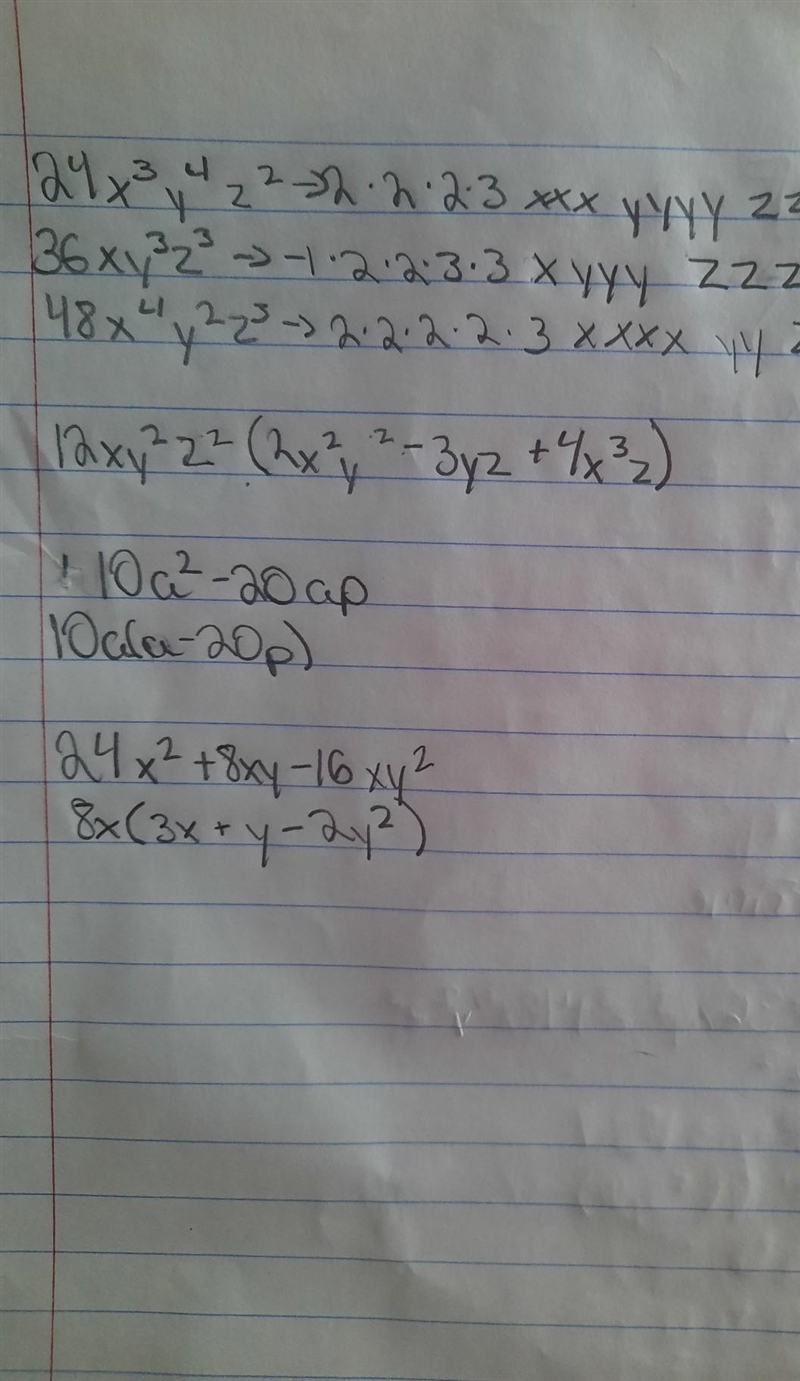 24x³y⁴z² → 2·2·2·3 xxx yyyy zz
36xy³z³ → -1·2·2·3·3 x yyy zzz
48x⁴y²z³ → 2·2·2·2·3 xxxx yy z
12xy²z² (2x²y² - 3yz + 4x³z)
10a² - 20ap
10a(a - 20p)
24x² + 8xy - 16xy²
8x(3x + y - 2y²)